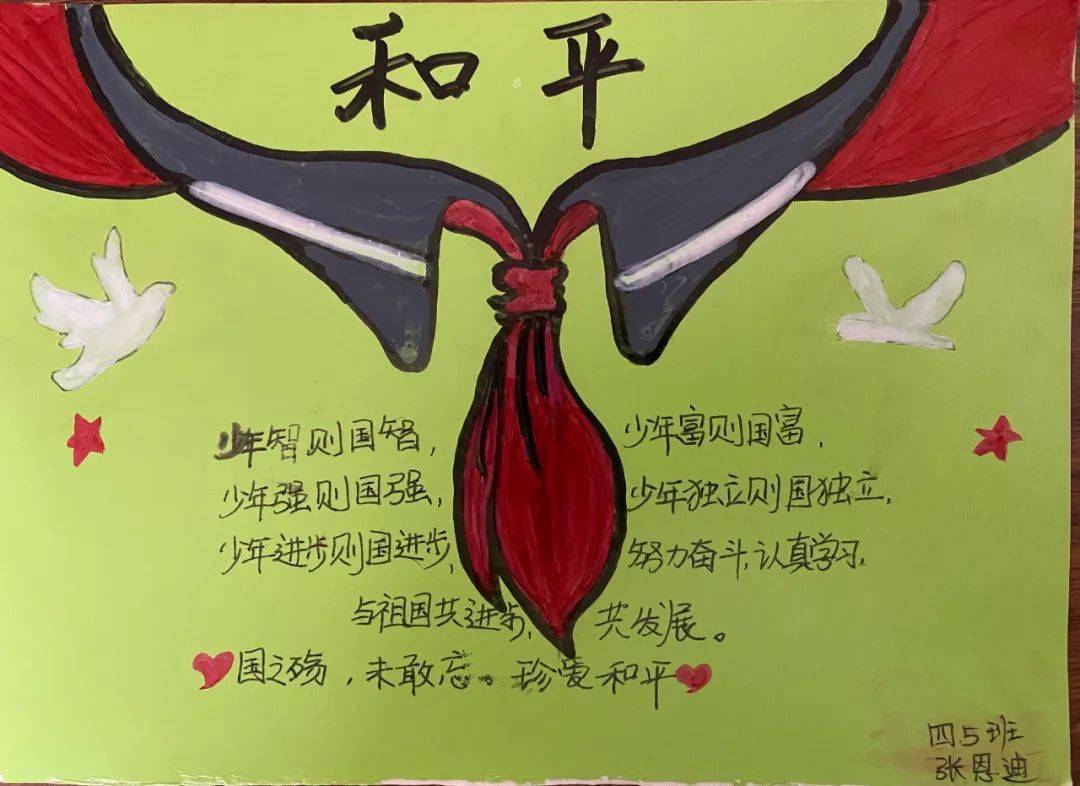 和平
少年智则国智，少年富则国富，
少年强则国强，少年独立则国独立，
少年进步则国进步，努力奋斗，认真学习，
与祖国共进步，共发展。
国之殇，未敢忘。珍爱和平
四5班
张恩迪